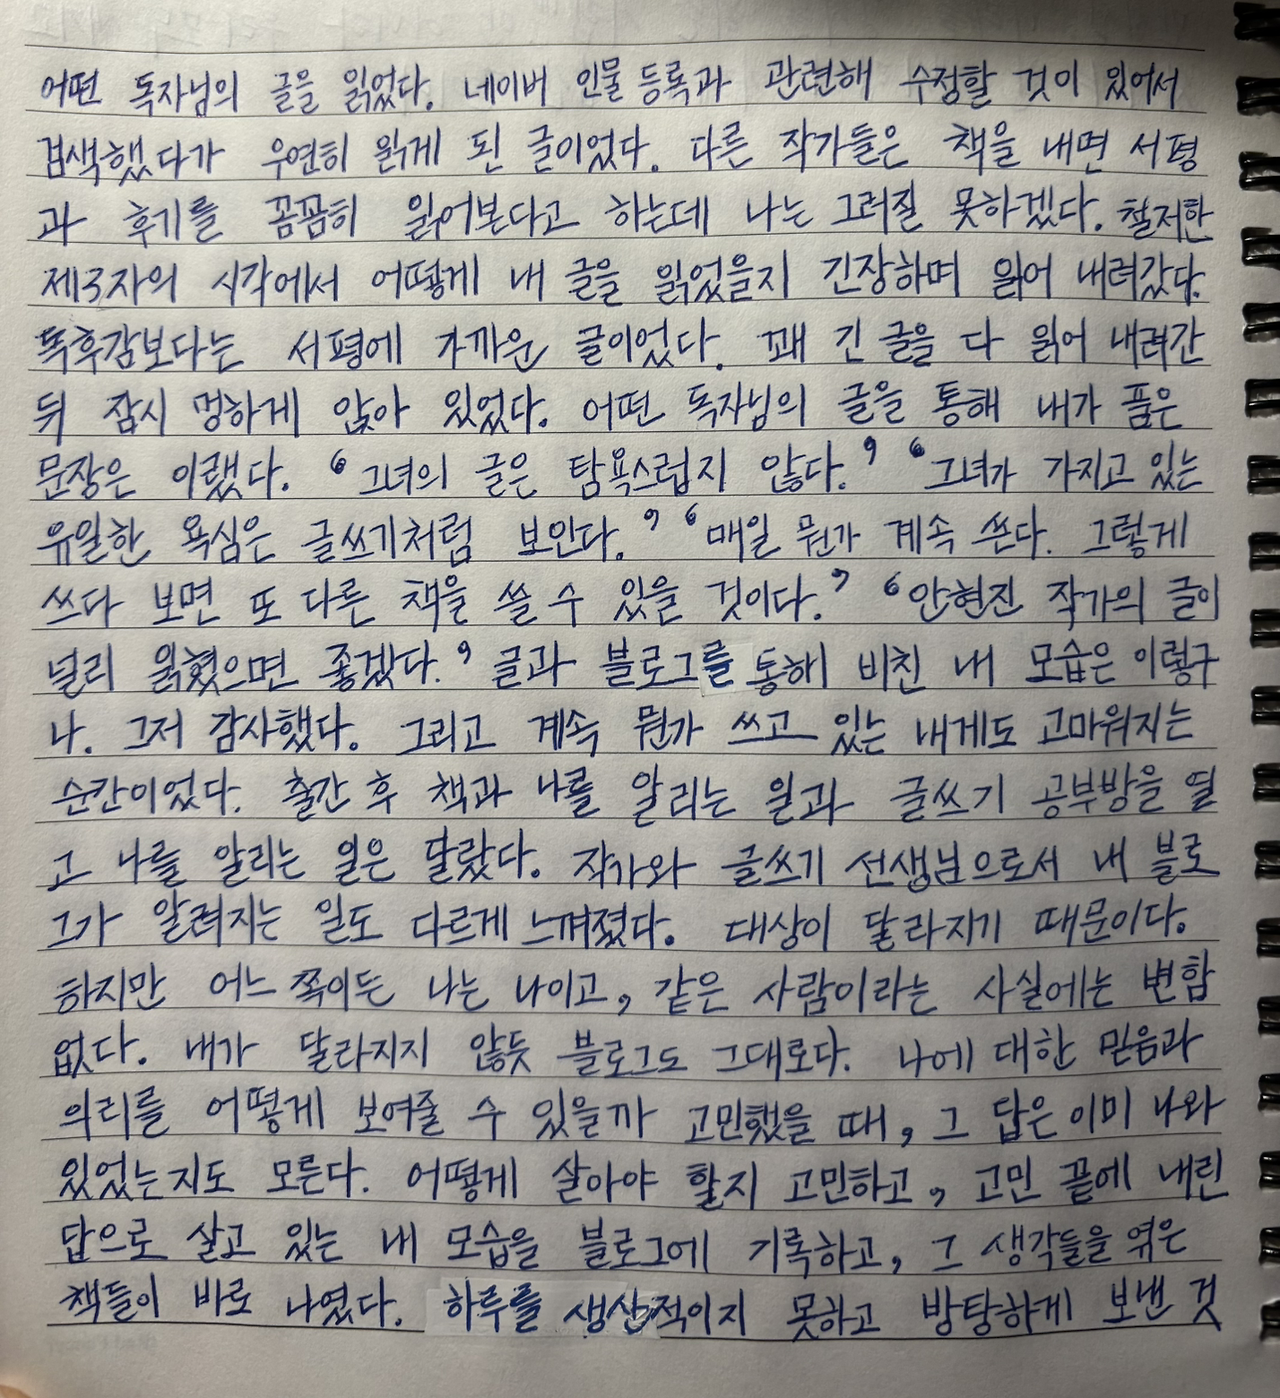 어떤 독자님의 글을 읽었다. 네이버 인물 등록과 관련해 수정할 것이 있어서
검색했다가 우연히 읽게 된 글이었다. 다른 작가들은 책을 내면 서평
과 후기를 꼼꼼히 읽어본다고 하는데 나는 그러질 못하겠다. 철저한
제3자의 시각에서 어떻게 내 글을 읽었을지 긴장하며 읽어 내려갔다.
독후감보다는 서평에 가까운 글이었다. 꽤 긴 글을 다 읽어 내려간
뒤 잠시 멍하게 앉아 있었다. 어떤 독자님의 글을 통해 내가 품은
문장은 이랬다. ‘그녀의 글은 탐욕스럽지 않다.’ ‘그녀가 가지고 있는
유일한 욕심은 글쓰기처럼 보인다.’ ‘매일 뭔가 계속 쓴다. 그렇게
쓰다 보면 또 다른 책을 쓸 수 있을 것이다.’ ‘안현진 작가의 글이
널리 읽혔으면 좋겠다.’ 글과 블로그를 통해 비친 내 모습은 이렇구
나. 그저 감사했다. 그리고 계속 뭔가 쓰고 있는 내게도 고마워지는
순간이었다. 출간 후 책과 나를 알리는 일과 글쓰기 공부방을 열
고 나를 알리는 일은 달랐다. 작가와 글쓰기 선생님으로서 내 블로
그가 알려지는 일도 다르게 느껴졌다. 대상이 달라지기 때문이다.
하지만 어느 쪽이든 나는 나이고, 같은 사람이라는 사실에는 변함
없다. 내가 달라지지 않듯 블로그도 그대로다. 나에 대한 믿음과
의리를 어떻게 보여줄 수 있을까 고민했을 때, 그 답은 이미 나와
있었는지도 모른다. 어떻게 살아야 할지 고민하고, 고민 끝에 내린
답으로 살고 있는 내 모습을 블로그에 기록하고, 그 생각들을 엮은
책들이 바로 나였다. 하루를 생산적이지 못하고 방탕하게 보낸 것